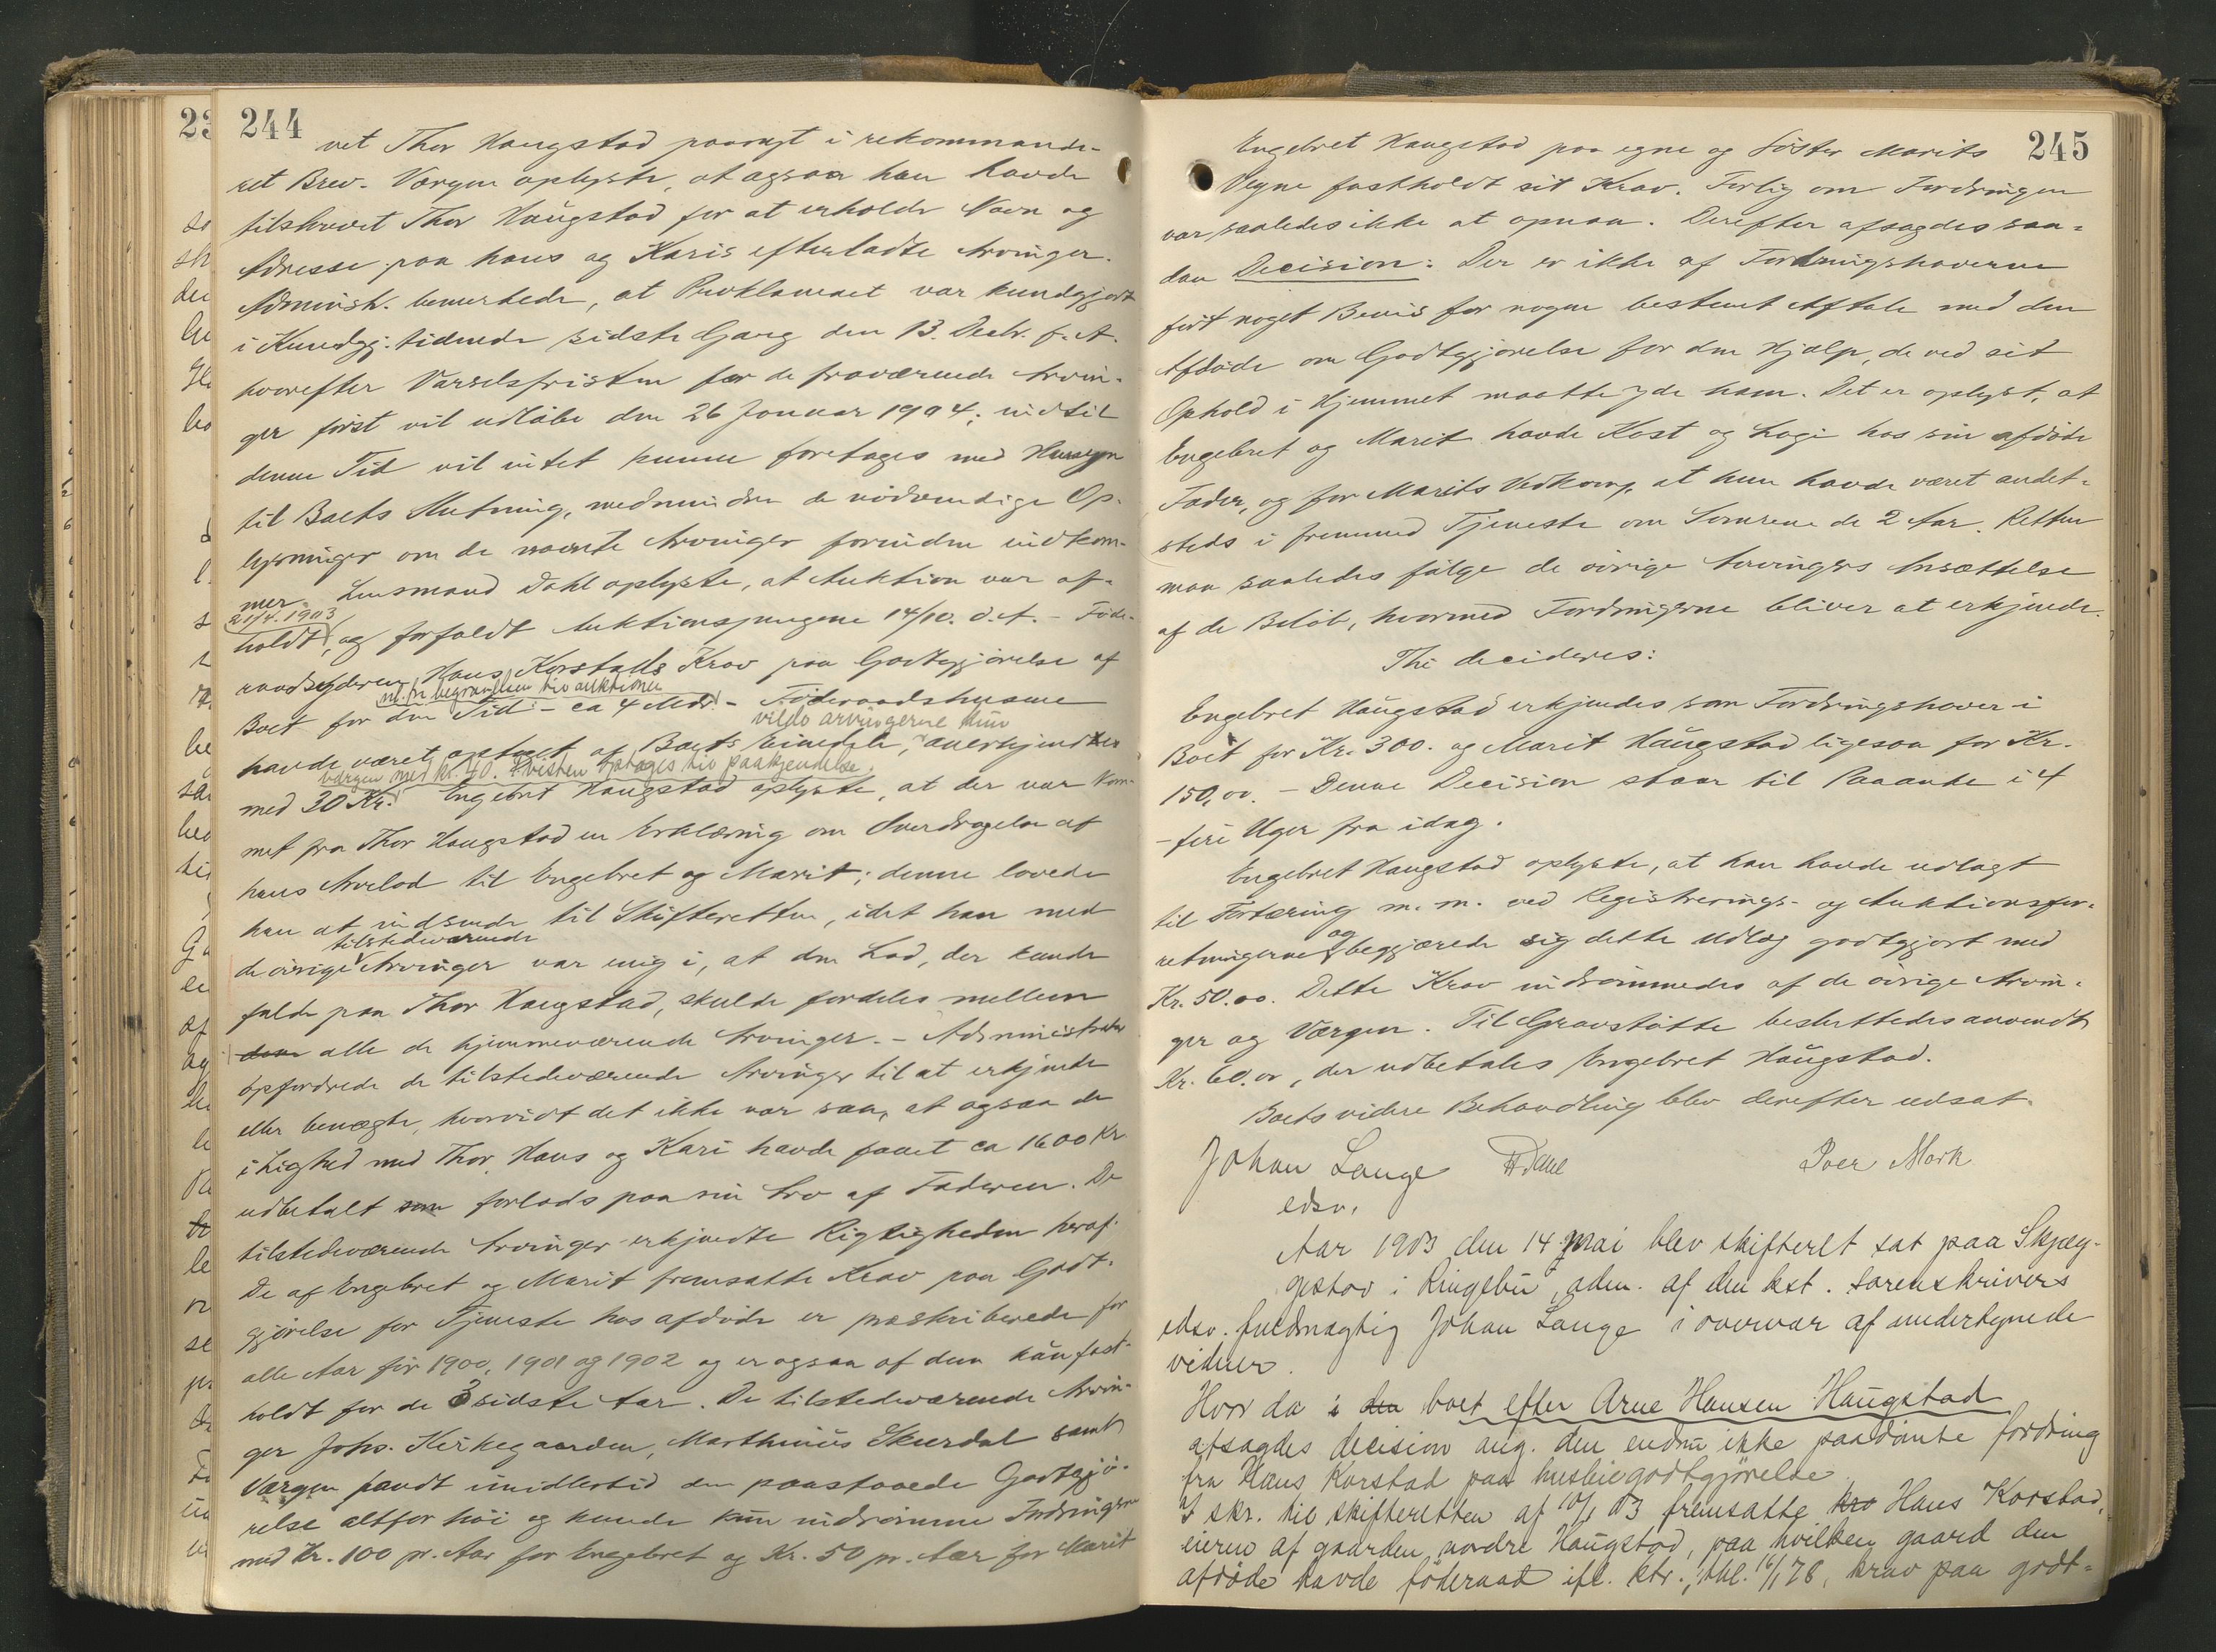 244
vet Thor Haugstad paavagt i rekommande-
ret Brev. Værgen oplyste, at ogsaa han havde
tilskrevet Thor Haugstad for at erholde Navn og
Adresse paa hans og Karis efterladte Arvinger.
Administ. bemerkede, at Proklamaet var kundgjort
i Kundgj. tidende sidste Gang den 13. Decbr. f. A.
hvorefter Varselsfristen for de fraværende Arvin-
ger først vil udløbe den 26 Januar 1904; indtil
denne Tid vil intet kunne foretages med Hensyn
til Boets Slutning, medmindre de nødvendige Op-
lysninger om de nævnte Arvinger forinden indkom-
mer. Lensmand Dahl oplyste, at Auktion var af-
21/4. 1903
holdt, og forfaldt Auktionspengene 14/10. d. A. - Føde-
raadsyderen Hans Korstads Krav paa Godtgjørelse af
nl. fr begravelsen til auktionen
Boet for den Tid - ca 4 Mdr. - Føderaadshusene
vilde arvingerne kun
havde været optaget af Boets Eiendele, anerkjendtes
værgen med kr. 40. Tvisten optages til paakjendelse.
med 30 Kr. Engebret Haugstad oplyste, at der var kom-
met fra Thor Haugstad en Erklæring om Overdragelse af
hans Arvelod til Engebret og Marit; denne lovede
han at indsende til Skifteretten, idet han med
tilstedeværende
de øvrige Arvinger var enig i, at den Lod, der kunde
falde paa Thor Haugstad, skulde fordeles mellem
dem alle de hjemmeværende Arvinger. - Administrator
opfordrede de tilstedeværende Arvinger til at erkjende
eller benægte, hvorvidt det ikke var saa, at ogsaa de
i Lighed med Thor, Hans og Kari havde faaet ca 1600 Kr.
udbetalt som forlods paa sin Arv af Faderen. De
tilstedeværende Arvinger erkjendte Rigtigheden heraf.
De af Engebret og Marit fremsatte Krav paa Godt-
gjørelse for Tjeneste hos afdøde er præskriberede for
alle Aar før 1900, 1901 og 1902 og er ogsaa af dem kun fast-
holdt for de 3 sidste Aar. De tilstedeværende Arvin-
ger Johs. Kirkegaarden, Marthinus Ekurdal samt
Værgen fandt imidlertid den paastaaede Godtgjø-
relse altfor høi og kunde kun indrømme Fordringen
med Kr. 100 pr. Aar for Engebret og Kr. 50 pr. Aar for Marit
245
Engebret Haugstad paa egne og Søster Marits
Vegne fastholdt sit Krav. Forlig om Fordringen
var saaledes ikke at opnaa. Derefter afsagdes saa-
dan Decision: Der er ikke af Fordringshaverne
ført noget Bevis for nogen bestemt Aftale med den
Afdøde om Godtgjørelse for den Hjælp, de ved sit
Ophold i Hjemmet maatte yde ham. Det er oplyst, at
Engebret og Marit havde Kost og Logi hos sin afdøde
Fader, og for Marits Vedkom., at hun havde været andet-
steds i fremmed Tjeneste om Somrene de 2 Aar. Retten
maa saaledes følge de øvrige Arvingers Ansættelse
af de Beløb, hvormed Fordringerne bliver at erkjende.
Thi decideres:
Engebret Haugstad erkjendes som Fordringshaver i
Boet for Kr. 300. og Marit Haugstad ligesaa for Kr.
150,00. - Denne Decision staar til Paaanke i 4
- fire Uger fra idag.
Engebret Haugstad oplyste, at han havde udlagt
til Fortæring m. m. ved Registrerings- og Auktionsfor-
og
retningerne begjærede sig dette Udlæg godtgjort med
Kr. 50.00. Dette Krav indrømmedes af de øvrige Arvin-
ger og Værgen. Til Gravstøtte besluttedes anvendt
Kr. 60.00, der udbetales Engebret Haugstad.
Boets videre Behandling blev derefter udsat.
Johan Lange Dahl Iver Mork
edsv.
Aar 1903 den 14 mai blev skifteret sat paa Skjæg-
gestad i Ringebu, adm. af den kst. sorenskrivers
edsv. fuldmægtig Johan Lange i overvær af undertegnede
vidner.
Hvor da i den boet efter Arne Hansen Haugstad
afsagdes decision ang. den endnu ikke paadømte fordring
fra Hans Korstad paa husleiegodtgjørelse.
I skr. til skifteretten af 10/1 03 fremsatte kra Hans Korstad,
eieren af gaarden nordre Haugstad, paa hvilken gaard den
afdøde havde føderaad ifl. ktr., thl. 16/1 78, krav paa godt-